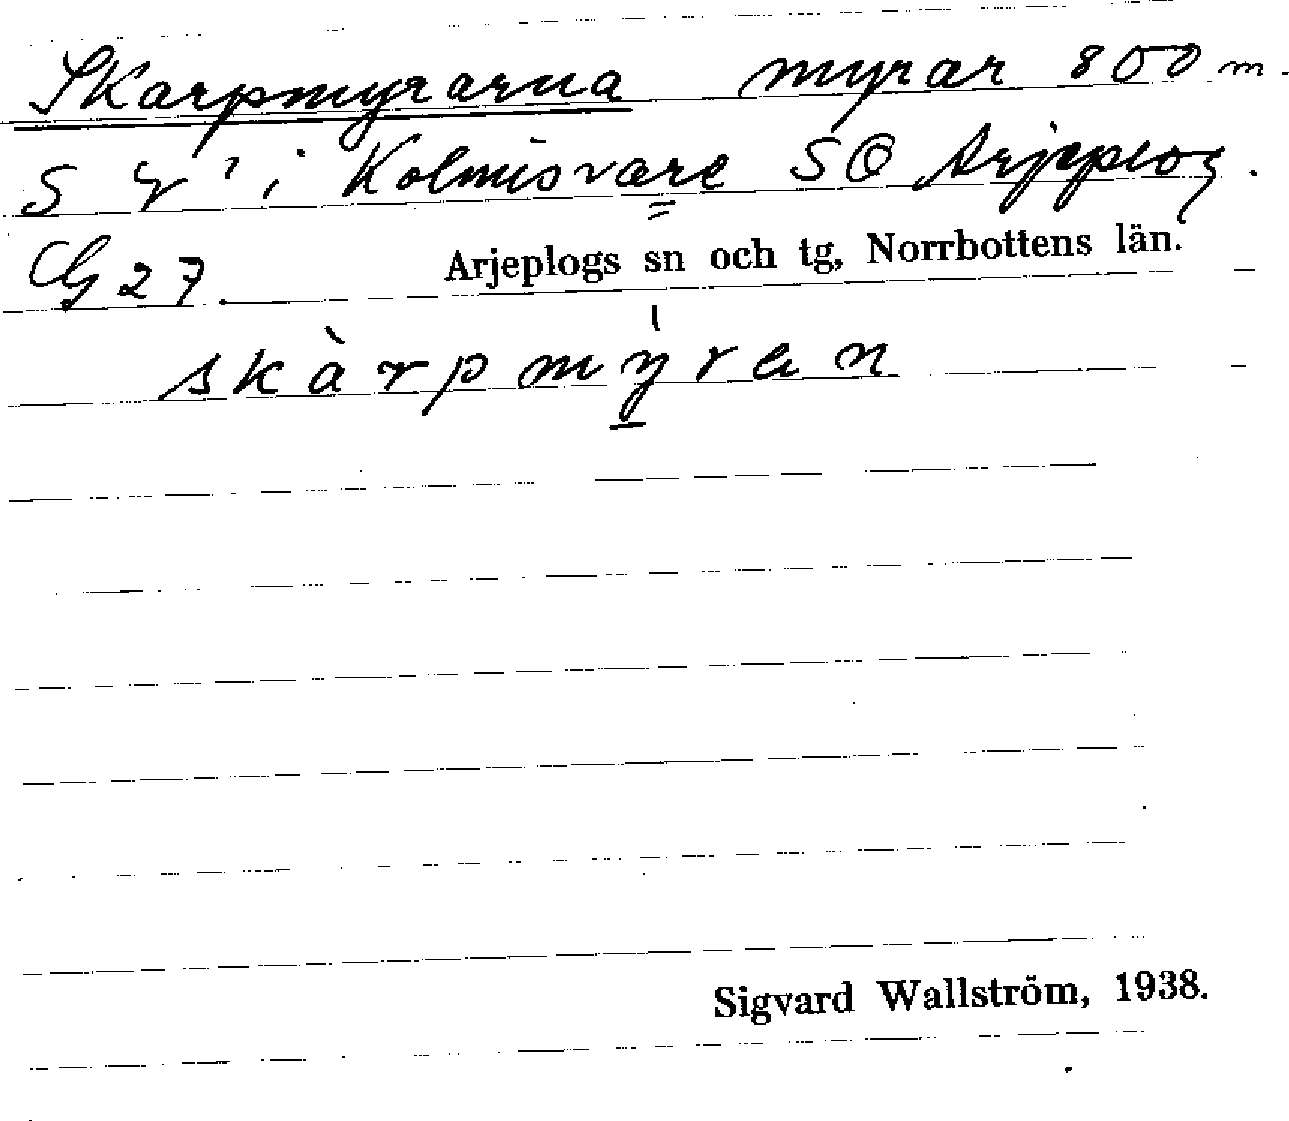 Skarpmyrarna myrar 800 m.
S i Kolmisvare SO Arjeplog.
27 Arjeplogs sn och tg, Norrbottens län.
skàrpmyran
Sigvard Wallström, 1938.